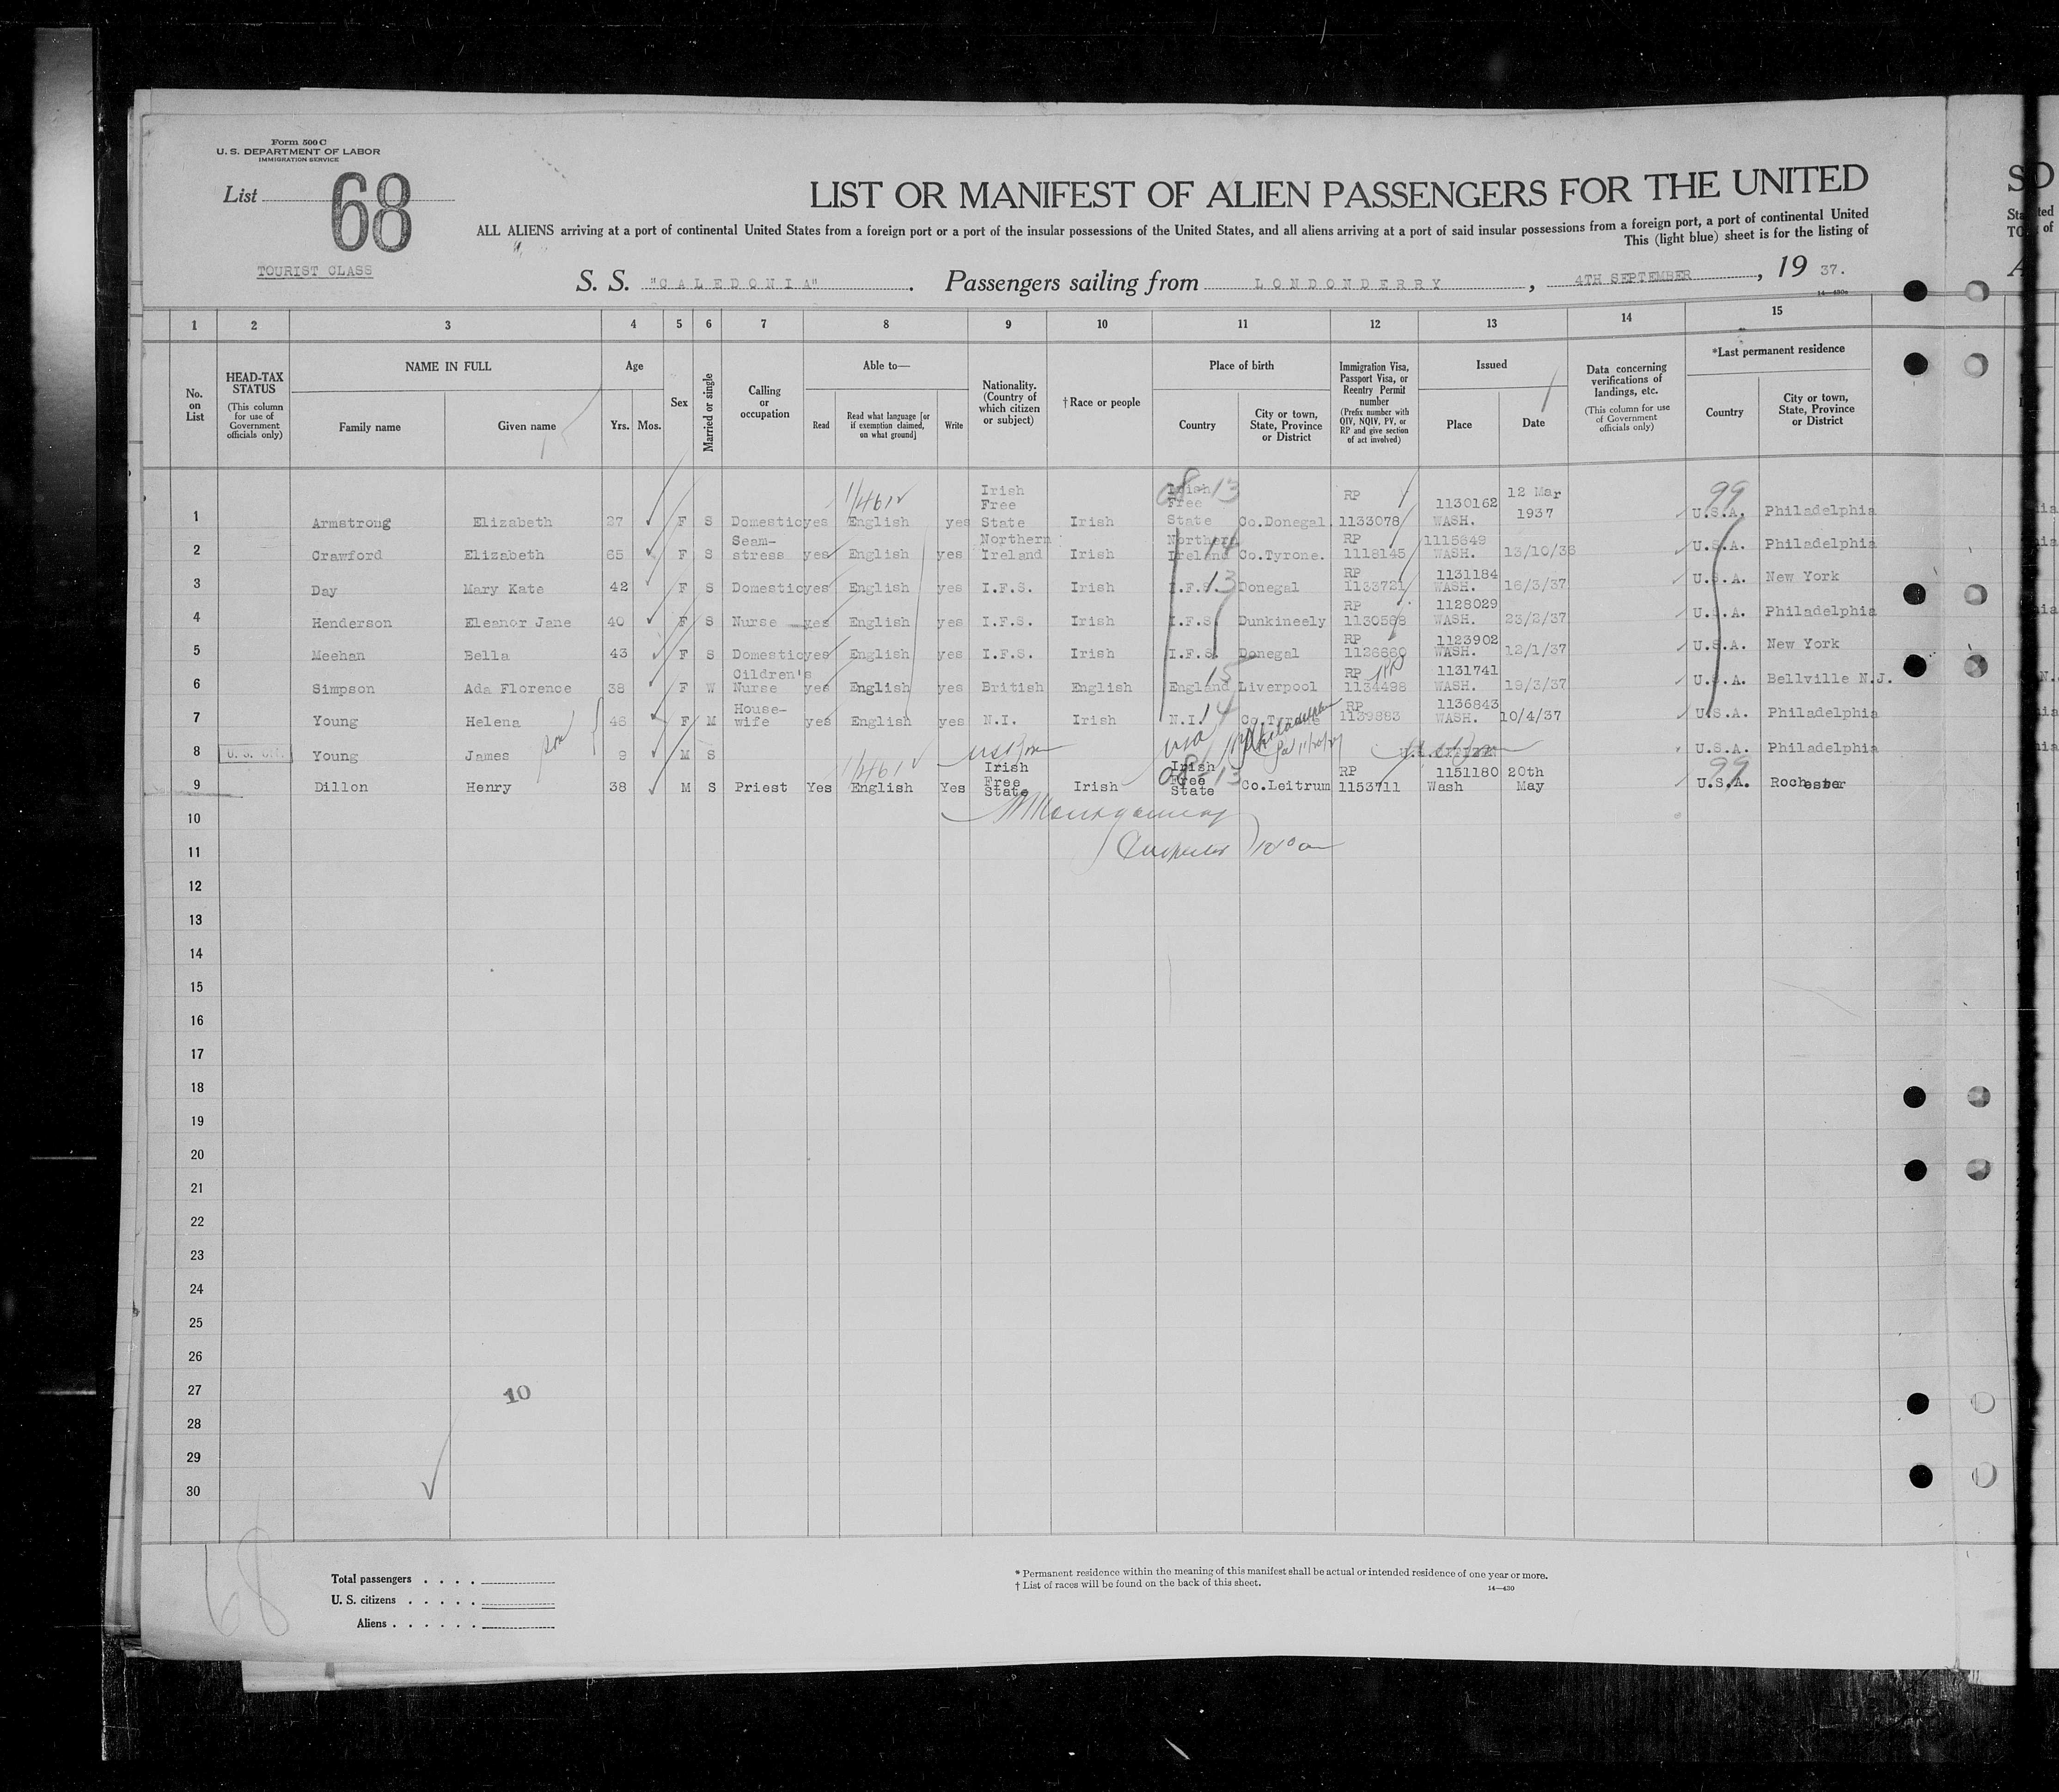 Form 500 C
U. S. DEPARTMENT OF LABOR
IMMIGRATION SERVICE
List 68
TOURIST CLASS
LIST OR MANIFEST OF ALIEN PASSENGERS FOR THE UNITED
ALL ALIENS arriving at a port of continental United States from a foreign port or a port of the insular possessions of the United States, and all aliens arriving at a port of said insular possessions from a foreign port, a port of continental United
This (light blue) sheet is for the listing of
S. S. "CALEDONIA". Passengers sailing from LONDONDERRY, 4TH SEPTEMBER, 19 37.
14—430
1 2 3 4 5 6 7 8 9 10 11 12 13 14 15
No. on List
HEAD-TAX STATUS (This column for use of Government officials only)
NAME IN FULL
Family name
Given name
Age
Yrs. Mos.
Sex
Married or single
Calling or occupation
Able to—
Read
Read what language [or if exemption claimed, on what ground]
Write
Nationality. (Country of which citizen or subject)
†Race or people
Place of birth
Country
City or town, State, Province or District
Immigration Visa, Passport Visa, or Reentry Permit number (Prefix number with QIV, NQIV, PV, or RP and give section of act involved)
Issued
Place
Date
Data concerning verifications of landings, etc. (This column for use of Government officials only)
*Last permanent residence
Country
City or town, State, Province or District
1 Armstrong Elizabeth 27 F S Domestic yes English yes Irish Free State Irish Irish Free State Co.Donegal. RP 1133078 1130162 WASH. 12 Mar 1937 U.S.A. Philadelphia
2 Crawford Elizabeth 65 F S Seam-stress yes English yes Northern Ireland Irish Northern Ireland Co.Tyrone. RP 1118145 1115649 WASH. 13/10/36 U.S.A. Philadelphia
3 Day Mary Kate 42 F S Domestic yes English yes I.F.S. Irish I.F.S. Donegal RP 1133721 1131184 WASH. 16/3/37 U.S.A. New York
4 Henderson Eleanor Jane 40 F S Nurse yes English yes I.F.S. Irish I.F.S. Dunkineely RP 1130588 1128029 WASH. 23/2/37 U.S.A. Philadelphia
5 Meehan Bella 43 F S Domestic yes English yes I.F.S. Irish I.F.S. Donegal RP 1126660 1123902 WASH. 12/1/37 U.S.A. New York
6 Simpson Ada Florence 38 F W Cildren's Nurse yes English yes British English England Liverpool RP 1134498 1131741 WASH. 19/3/37 U.S.A. Bellville N.J.
7 Young Helena 46 F M House-wife yes English yes N.I. Irish N.I. Co.Tyrone RP 1139883 1136843 WASH. 10/4/37 U.S.A. Philadelphia
8 Young James son 9 M S Philadelphia U.S.A. Philadelphia
9 Dillon Henry 38 M S Priest Yes English Yes Irish Free State Irish Irish Free State Co.Leitrum RP 1153711 1151180 Wash 20th May U.S.A. Rochester
10
11
12
13
14
15
16
17
18
19
20
21
22
23
24
25
26
27 10
28
29
30
68
Total passengers
U. S. citizens
Aliens
* Permanent residence within the meaning of this manifest shall be actual or intended residence of one year or more.
† List of races will be found on the back of this sheet.
14—430